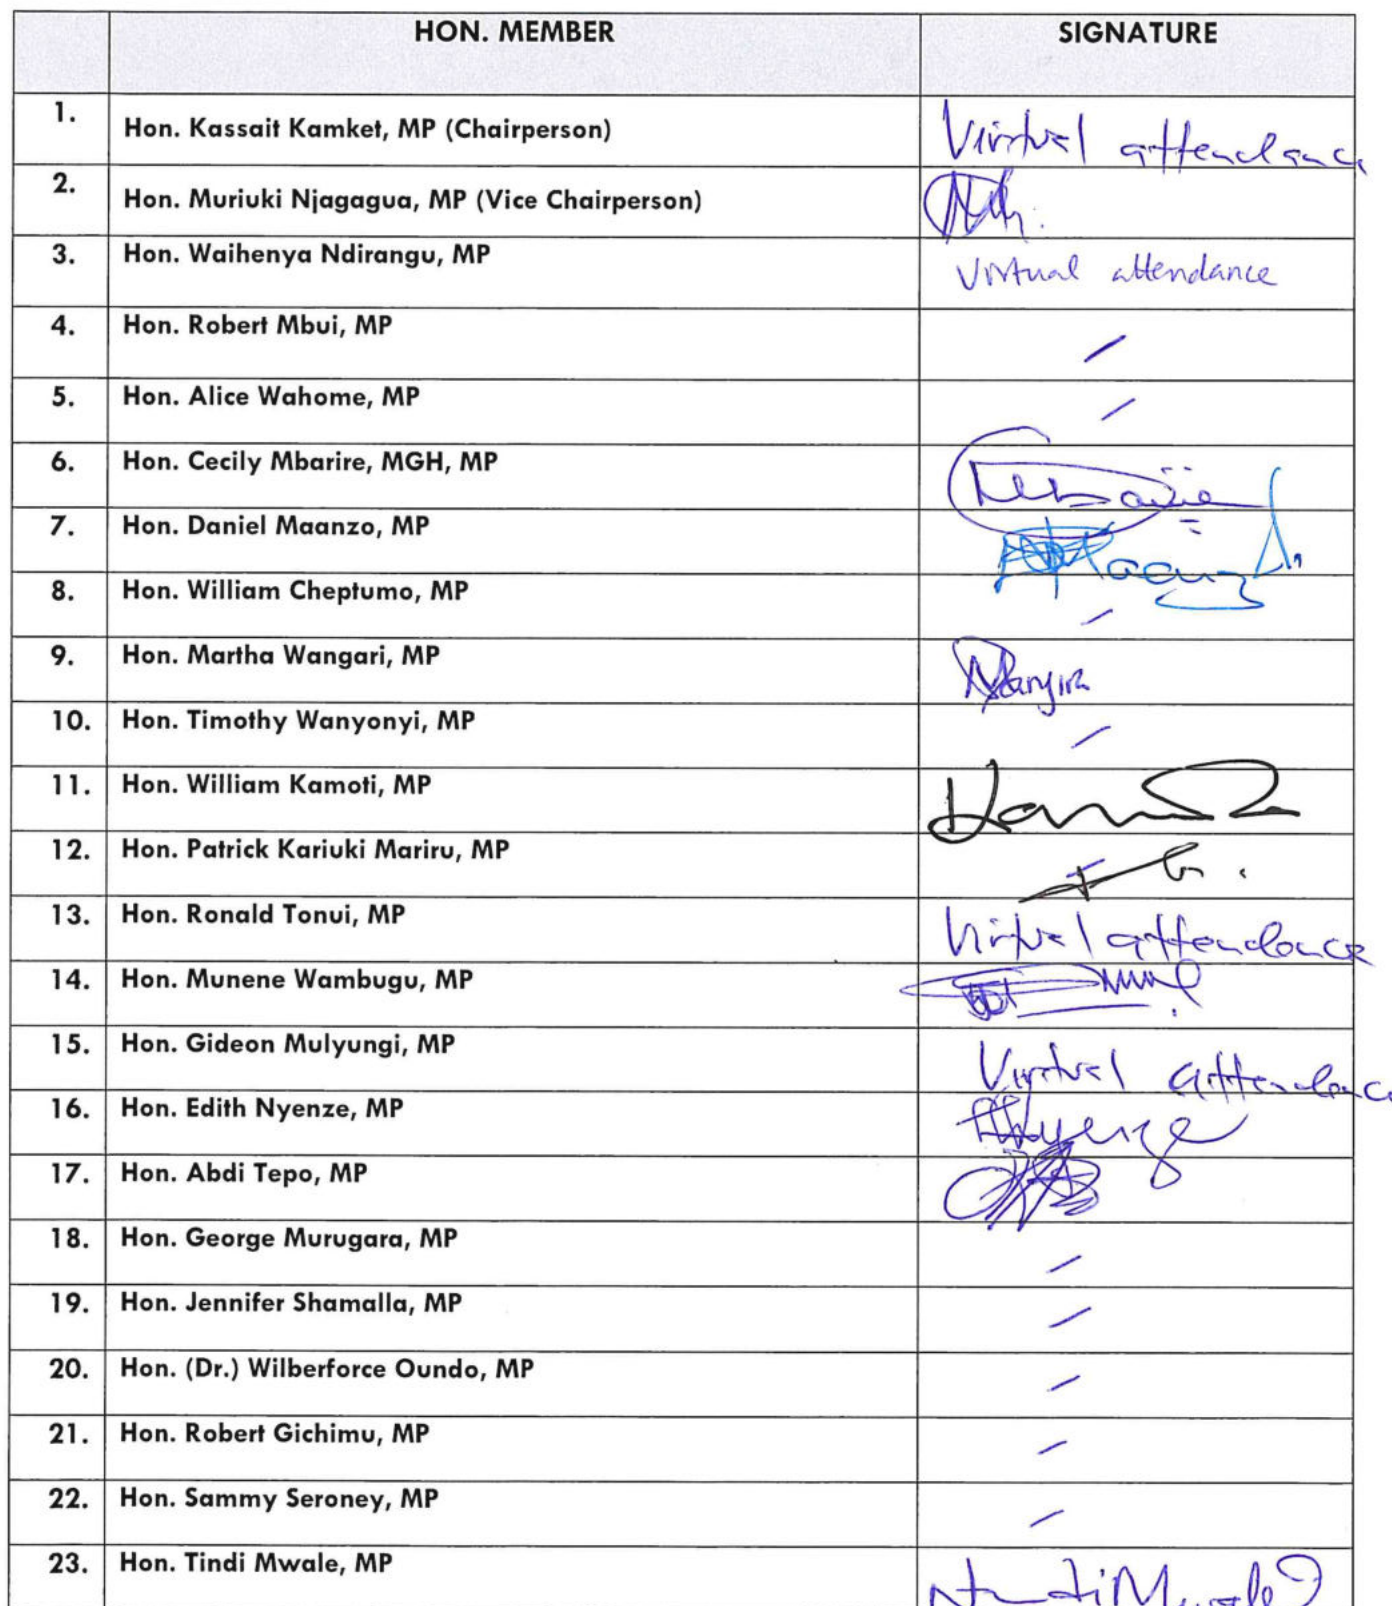 HON. MEMBER SIGNATURE
1. Hon. Kassait Kamket, MP (Chairperson) Virtual attendance
2. Hon. Muriuki Njagagua, MP (Vice Chairperson)
3. Hon. Waihenya Ndirangu, MP Virtual attendance
4. Hon. Robert Mbui, MP
5. Hon. Alice Wahome, MP
6. Hon. Cecily Mbarire, MGH, MP
7. Hon. Daniel Maanzo, MP
8. Hon. William Cheptumo, MP
9. Hon. Martha Wangari, MP
10. Hon. Timothy Wanyonyi, MP
11. Hon. William Kamoti, MP
12. Hon. Patrick Kariuki Mariru, MP
13. Hon. Ronald Tonui, MP Virtual attendance
14. Hon. Munene Wambugu, MP
15. Hon. Gideon Mulyungi, MP Virtual attendance
16. Hon. Edith Nyenze, MP
17. Hon. Abdi Tepo, MP
18. Hon. George Murugara, MP
19. Hon. Jennifer Shamalla, MP
20. Hon. (Dr.) Wilberforce Oundo, MP
21. Hon. Robert Gichimu, MP
22. Hon. Sammy Seroney, MP
23. Hon. Tindi Mwale, MP